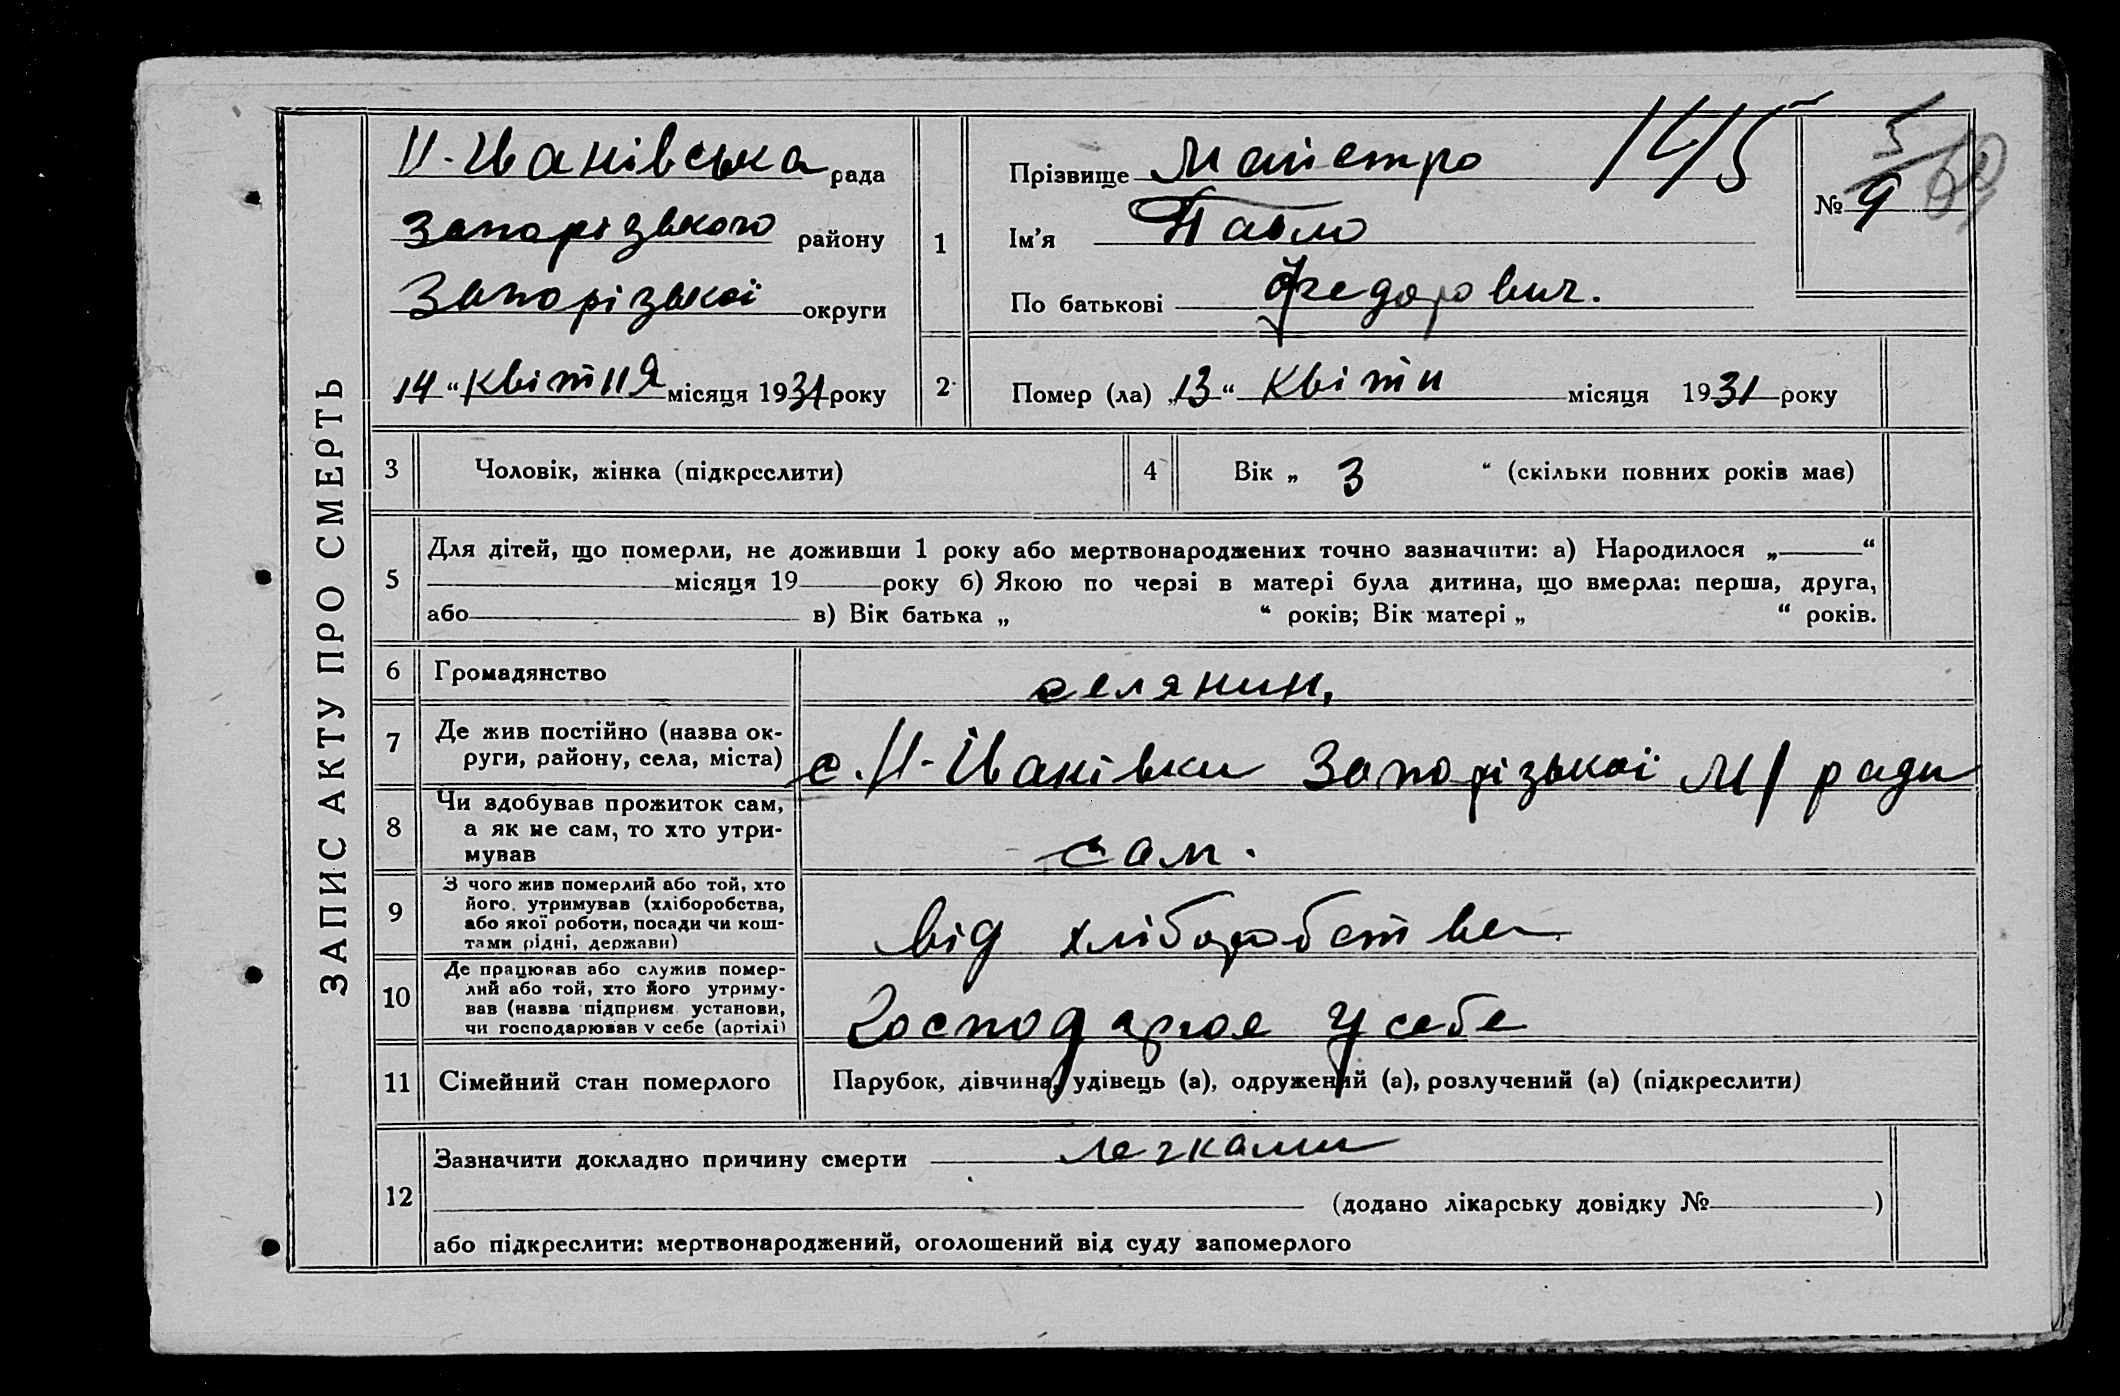 ЗАПИС АКТУ ПРО СМЕРТЬ
Н-Іванівська рада
Запорізького району
Запорізької округи
14 " квітня місяця 1931 року
1
Прізвище Майстро 145
Ім'я Павло
По батькові Федорович.
№ 5/9
2
Помер (ла) „13" квітн місяця 1931 року
3 Чоловік, жінка (підкреслити)
4 Вік „ 3 " (скільки повних років має)
5
Для дітей, що померли, не доживши 1 року або мертвонароджених точно зазначити: а) Народилося „ "
місяця 19 року б) Якою по черзі в матері була дитина, що вмерла: перша, друга,
або в) Вік батька „ " років; Вік матері „ " років.
6 Громадянство селянин,
7 Де жив постійно (назва ок-
руги, району, села, міста) с. Н-Іванівки Запорізької м/ ради
8 Чи здобував прожиток сам,
а як не сам, то хто утри-
мував сам.
9 З чого жив померлий або той, хто
його утримував (хліборобства,
або якої роботи, посади чи кош-
тами рідні, держави) від хліборобства
10 Де працював або служив помер-
лий або той, хто його утриму-
вав (назва підприєм. установи,
чи господарював у себе (артілі) Господарює у себе
11 Сімейний стан померлого Парубок, дівчина, удівець (а), одружений (а), розлучений (а) (підкреслити)
12
Зазначити докладно причину смерти легками
(додано лікарську довідку № )
або підкреслити: мертвонароджений, оголошений від суду запомерлого